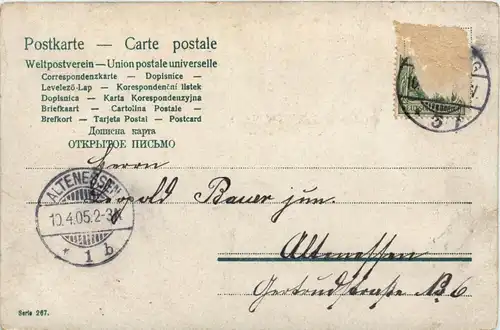 Postkarte — Carte postale
Weltpostverein — Union postale universelle
Correspondenzkarte – Dopisnice –
Levelező-Lap – Korespondenční lístek
Dopisnica – Karta Korespondenzyjna
Briefkaart – Cartolina Postale –
Brefkort – Tarjeta Postal – Postcard
Дописна карта
ОТКРЫТОЕ ПИСЬМО
Herrn
Leopold Bauer jun.
ALTENESSEN
10.4.05.2-3N
* 1 b
Altenessen
Gertrudstraße No 6
Serie 267.